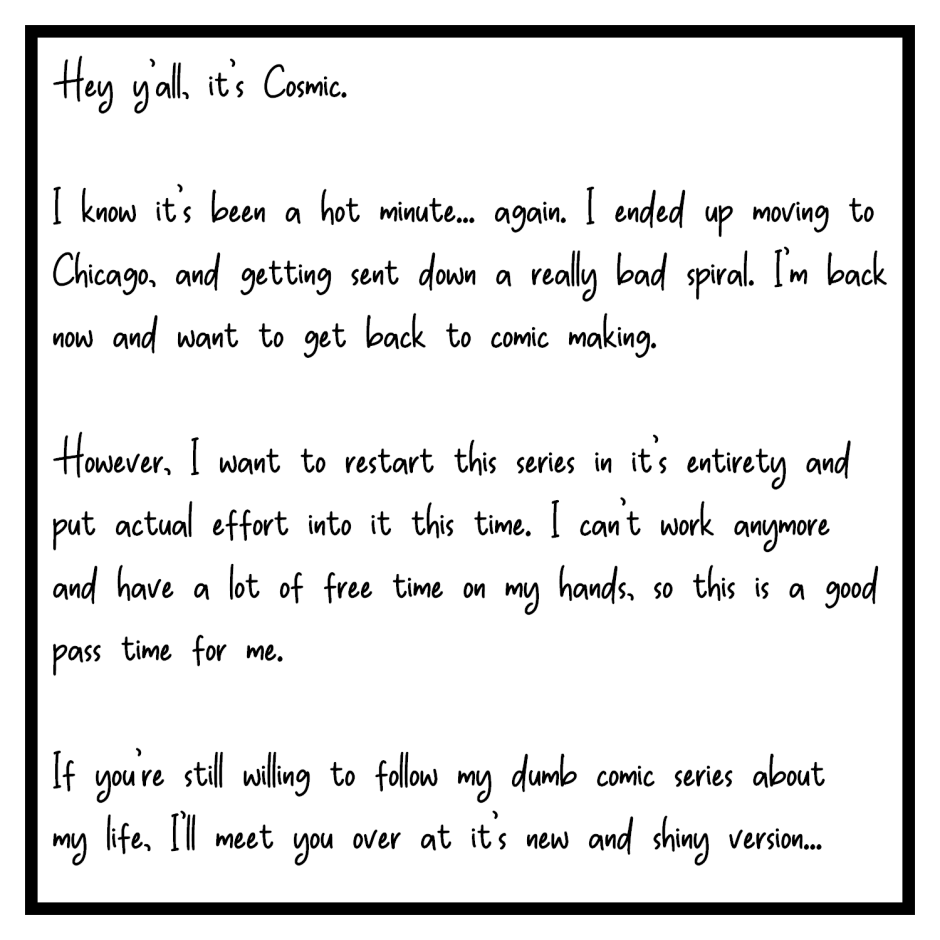 Hey y'all, it's Cosmic.
I know it's been a hot minute... again. I ended up moving to
Chicago, and getting sent down a really bad spiral. I'm back
now and want to get back to comic making.
However, I want to restart this series in it's entirety and
put actual effort into it this time. I can't work anymore
and have a lot of free time on my hands, so this is a good
pass time for me.
If you're still willing to follow my dumb comic series about
my life, I'll meet you over at it's new and shiny version...